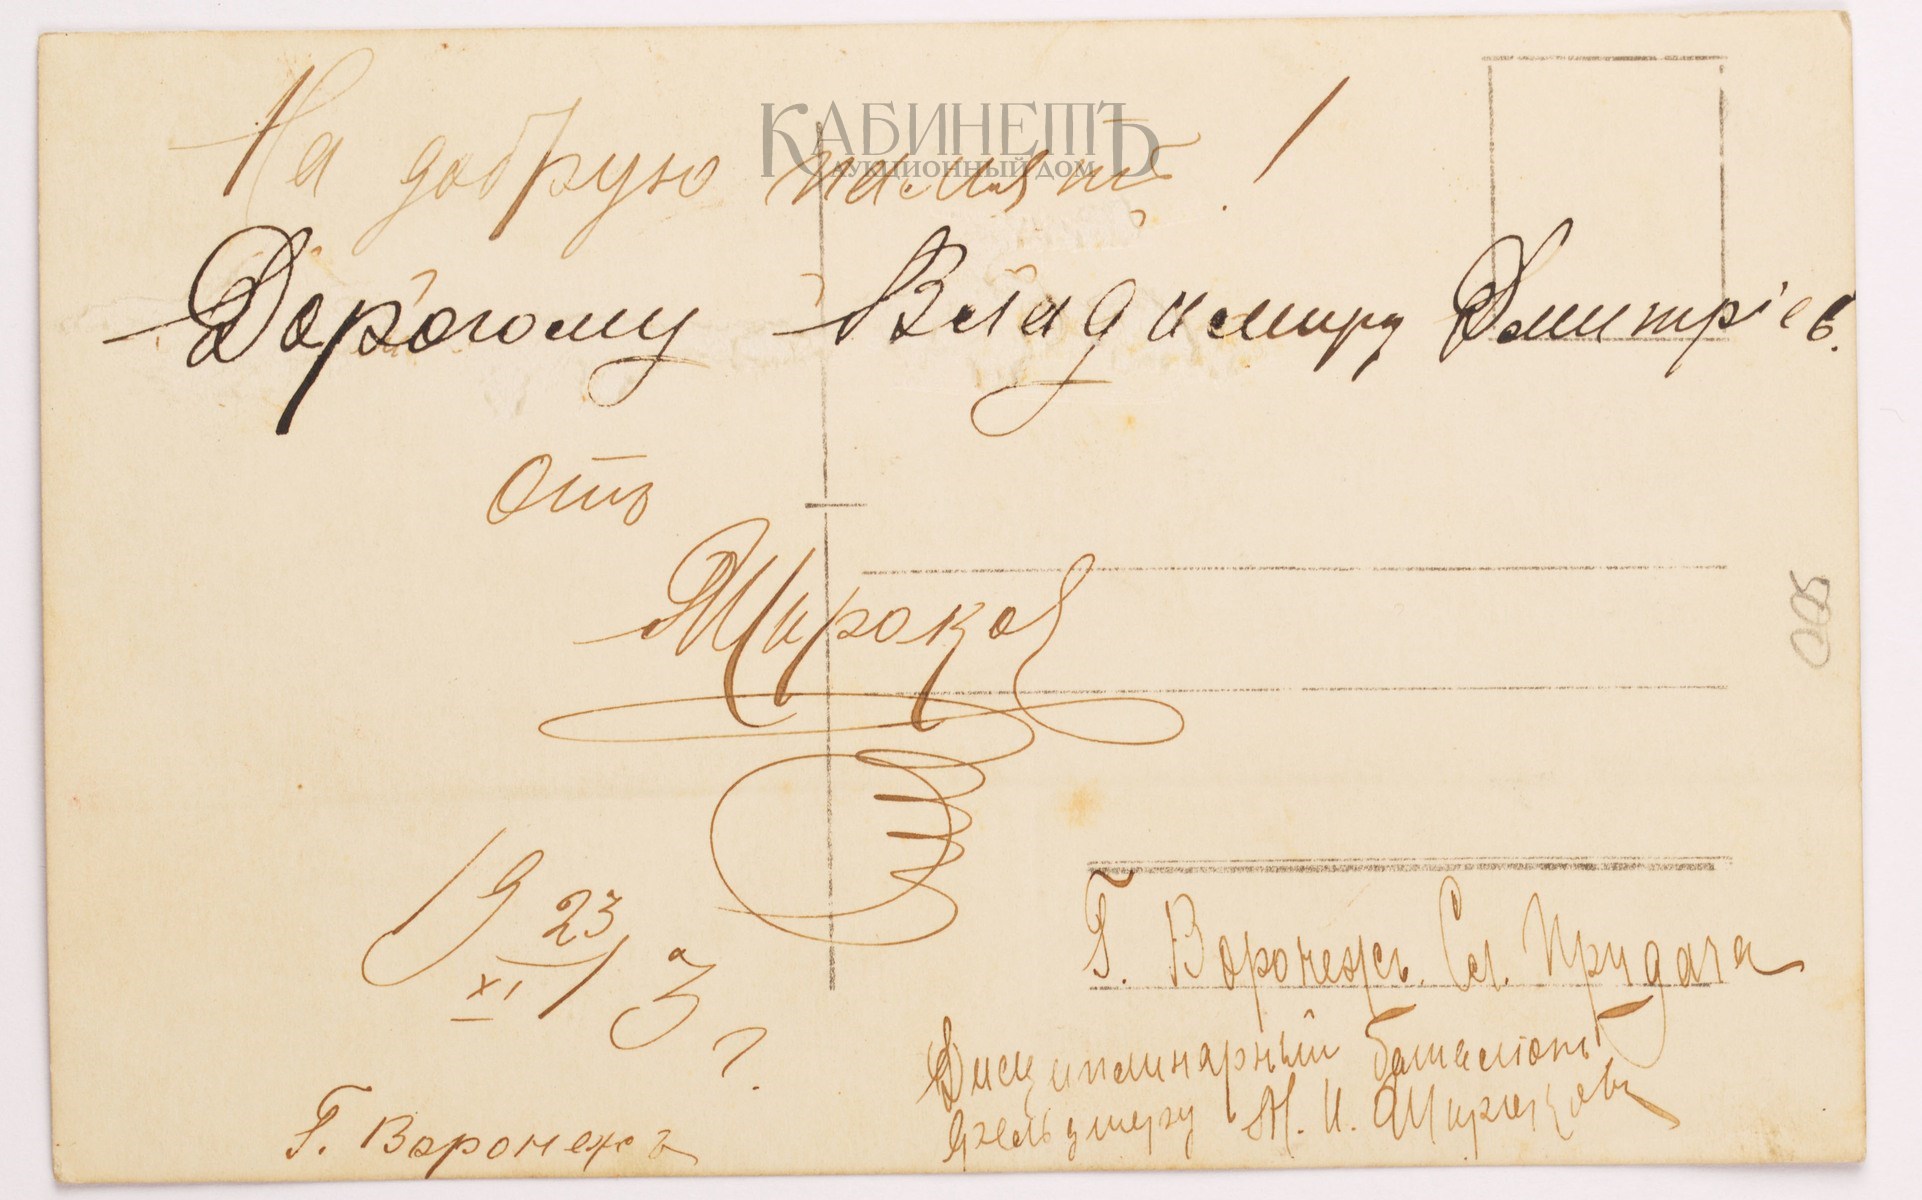 КАБИНЕТЪ
АУКЦИОННЫЙ ДОМ
На добрую память!
Дорогому Владимиру Дмитріев.
отъ
Широков
19 23/XI 3 г.
Г. Воронежъ
Г. Воронежъ. Сл. Придача
Дисциплинарный баталіонъ
фельдшеру М. И. Широкову
500